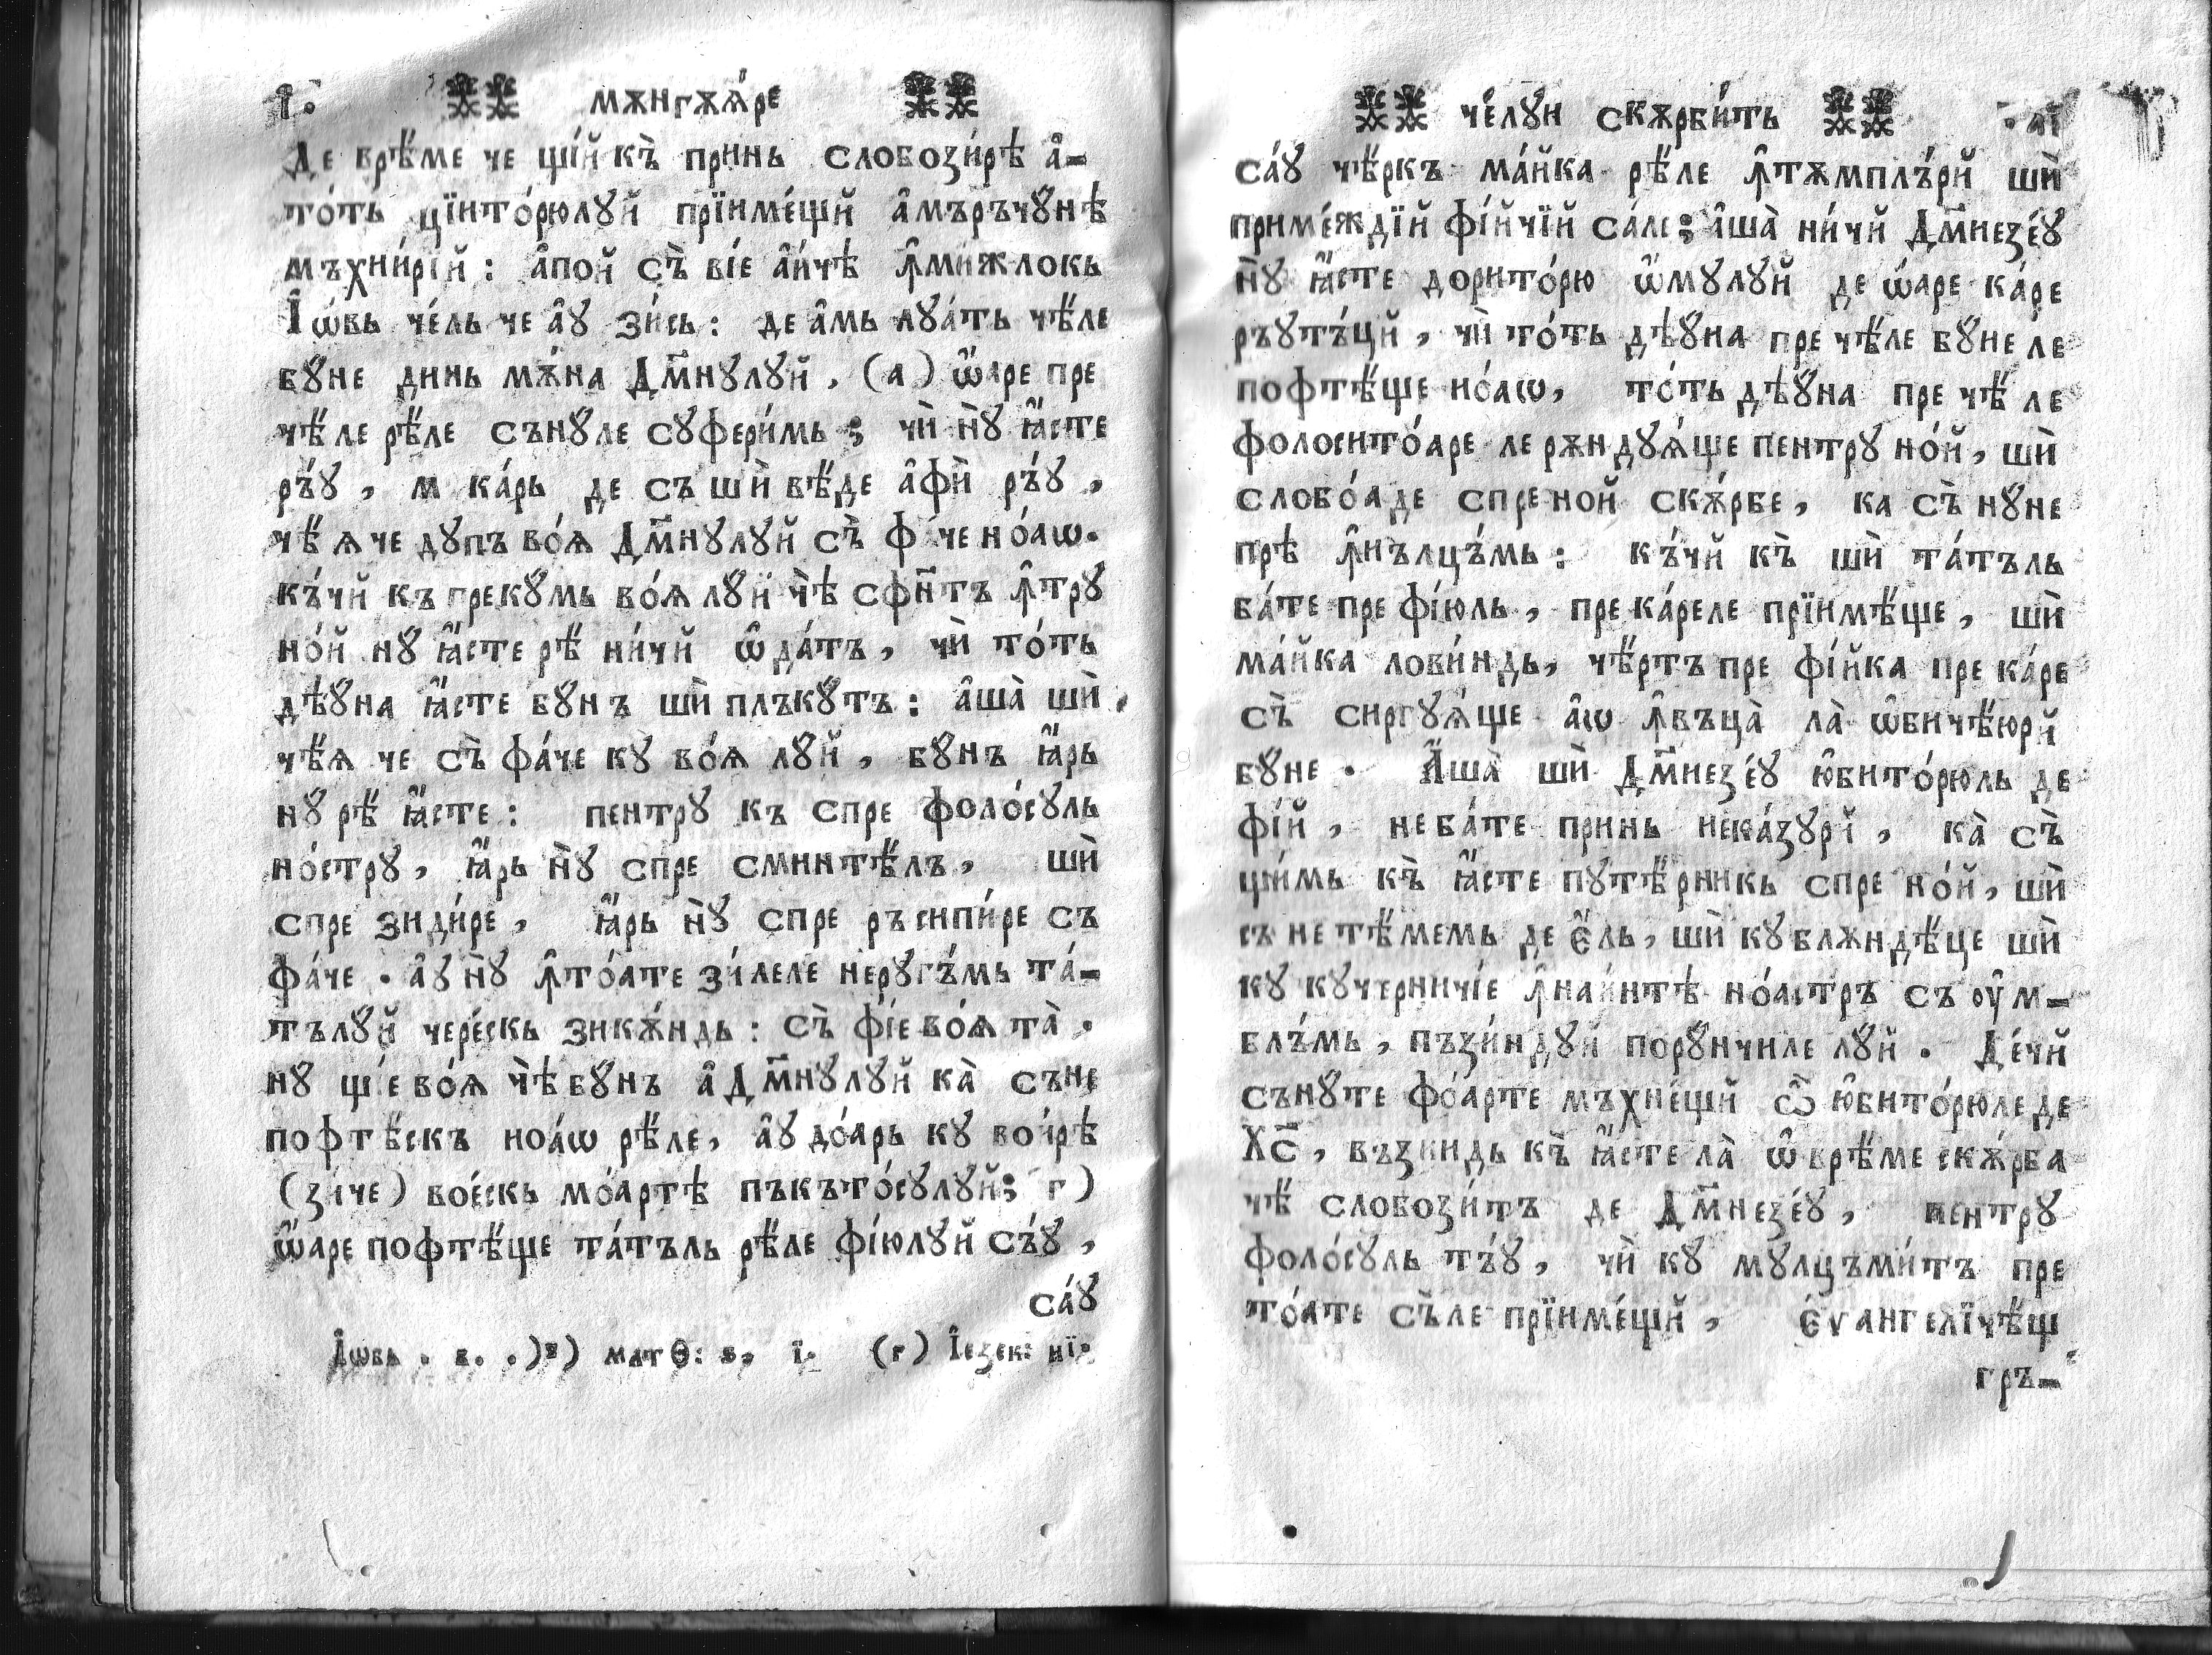 і. мѫнгѫѧ́ре
Де врѣ́ме че щі́й къ̀ принь слобози́рѣ а҆-
то́ть цїнто́рюлꙋй прїиме́щй а҆мъръчꙋ́нѣ
мъхни́рїй : а҆пой съ̀ ві́е а҆и́чѣ ꙟ҆мижлокь
І҆ѡ́вь че́ль че а҆ꙋ зи́сь : де а҆мь лꙋа́ть чѣ́ле
бꙋ́не динь мѫ́на Дм҃нꙋлꙋй , (а) ѡ҆́аре пре
чѣ́ле рѣ́ле сънꙋ́ле сꙋфери́мь ; чѝ нꙋ̀ ꙗ҆́сте
ръ́ꙋ , м ка́рь де съ шѝ вѣ́де а҆фѝ ръ́ꙋ ,
чѣ́ѧ че дꙋпъ во́ѧ Дм҃нꙋлꙋй съ̀ ф че но́аѡ.
къ́чй къ прекꙋ́мь во́ѧ лꙋ́й чѣ̀ сфн҃тъ ꙟ҆трꙋ
но́й нꙋ́ ꙗ҆́сте рѣ́ ни́чй ѡ҆ да́тъ , чѝ то́ть
дѣꙋ́на ꙗ҆́сте бꙋ́нъ шѝ плъкꙋ́тъ : а҆ша̀ шѝ ,
чѣ́ѧ че съ̀ фа́че кꙋ во́ѧ лꙋ́й , бꙋ́нъ ꙗ҆́рь
нꙋ́ рѣ́ ꙗ҆́сте : пентрꙋ къ спре фоло́сꙋль
но́стрꙋ , ꙗ҆́рь нꙋ̀ спре сминтѣ́лъ , шѝ
спре зиди́ре , ꙗ҆́рь нꙋ̀ спре ръсипи́ре съ
фа́че . а҆ꙋ нꙋ̀ ꙟ҆то́ате зи́леле неругъ́мь та́-
тълꙋ́й чере́скь зикѫ́ндь : съ̀ фі́е во́ѧ та̀ .
нꙋ щ е во́ѧ чѣ̀ бꙋ́нъ а҆ Дм҃нꙋлꙋй ка̀ съне
пофтѣ́скъ ноа́ѡ рѣ́ле , а҆ꙋ до́арь кꙋ вои́рѣ
(зи́че) вое́скь мо́артѣ пъкъто́сꙋлꙋй ; г)
ѡ҆́аре пофтѣ́ще та́тъль рѣ́ле фі́юлꙋй съ́ꙋ ,
са́ꙋ
І҆ѡвь . в. .) в) матѲ : ѕ, і. (г) І҆езек : иї.
че́лꙋи скѫрби́ть аі
са́ꙋ чѣ́ркъ ма́йка рѣ́ле ꙟ҆тѫмплъ́рй шѝ
приме́ждїй фі́йчїй са́ле ; а҆ша̀ ни́чй Дм҃незе́ꙋ
нꙋ̀ ꙗ҆́сте дорито́рю ѡ҆́мꙋлꙋй де ѡ҆́аре ка́ре
ръꙋтъ́цй , чѝ то́ть дѣꙋ́на пре чѣ́ле бꙋ́не ле
пофтѣ́ще но́аѡ , то́ть дѣꙋ́на пре чѣ́ ле
фолосито́аре ле рѫндꙋѧ́ще пентрꙋ но́й , шѝ
слобо́аде спре ной скѫ́рбе , ка съ̀ нꙋ́не
прѣ ꙟ҆нълцъ́мь : къ́чй къ шѝ та́тъль
ба́те пре фі́юль , пре ка́реле прїимѣ́ще , шѝ
ма́йка лови́ндь , чѣ́ртъ пре фі́йка пре ка́ре
съ̀ сиргꙋѧ́ще а҆ѡ ꙟ҆въца̀ ла̀ ѡ҆бичѣ́юрй
бꙋ́не . А҆ша̀ шѝ Дм҃незе́ꙋ ю҆бито́рюль де
фі́й , не ба́те принь неказꙋрї , ка̀ съ̀
щи́мь къ̀ ꙗ҆́сте пꙋтѣ́рникь спре но́й , шѝ
съ не тѣ́мемь де є҆́ль , шѝ кꙋ блѫндѣ́це шѝ
кꙋ кꙋчерничі́е ꙟ҆наи́нтѣ но́астръ съ ѹ҆́м-
блъ́мь , пъзи́ндꙋй порꙋ́нчиле лꙋ́й . Де́чй
сънꙋ́те фо́арте мъхне́щй ѽ ю҆бито́рюле де
Хс҃ , възкиндь къ̀ ꙗ҆́сте ла̀ ѡ҆ врѣ́ме скѫ́рба
чѣ́ слобози́тъ де Дм҃незе́ꙋ , пентрꙋ
фоло́сꙋль тъ́ꙋ , чѝ кꙋ мꙋлцъми́тъ пре
то́ате съ̀ле прїиме́щй , є҆ѵангелїчѣ́щ
гръ-